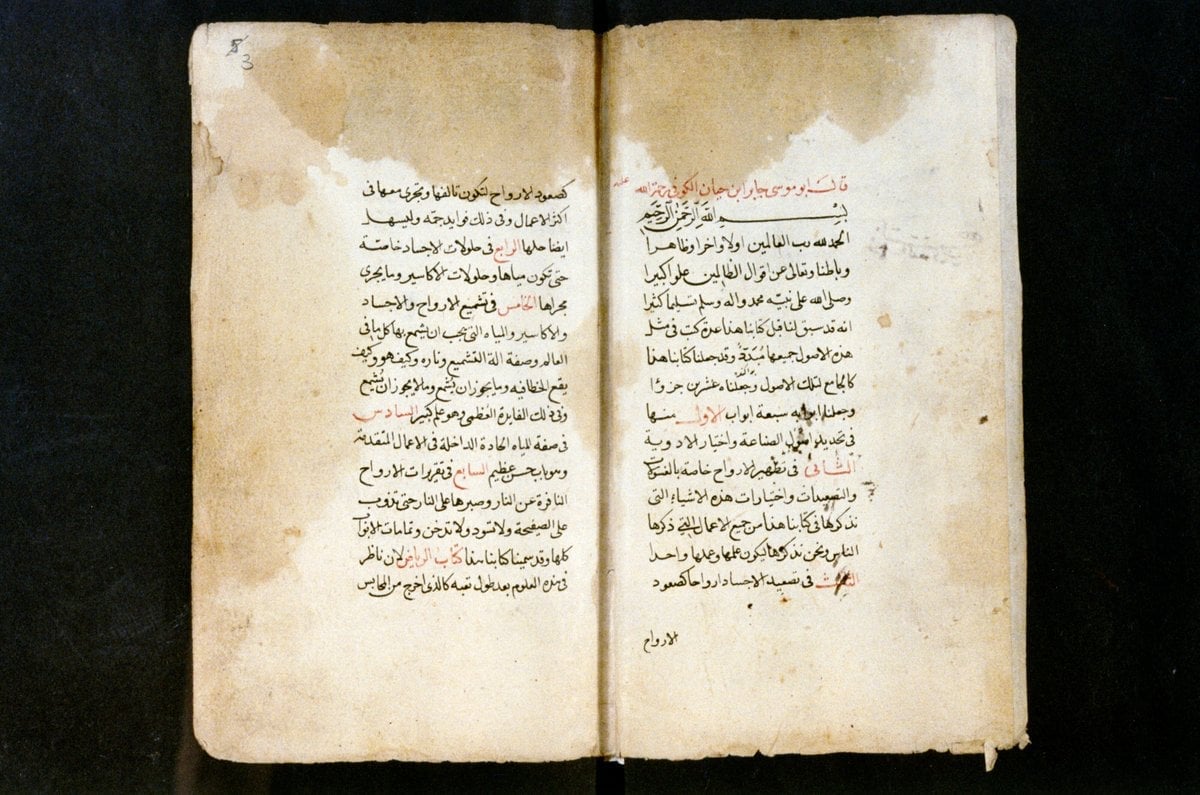 قال ابو موسى جابر ابن حيان الكوفى رحمة الله عليه
بسم الله الرحمن الرحيم
الحمد لله رب العالمين اولا واخرا وظاهرا
وباطنا وتعالى عن اقوال الظالمين علوا كبيرا
وصلى الله على نبيّه محمد واله وسلم تسليما كثيرا
انه قد سبق لنا قبل كتابنا هذا عدة كتب فى مثل
هذه الاصول جميعها مُبَدّدَةً وقد جعلنا كتابنا هذا
كالجامع لتلك الاصول وجعلناه عشرين جزوًا
وجعلنا ابوابه سبعة ابواب الاول منها
فى تحديد اصول الصناعة واختيار الادوية
الثانى فى تطهير الارواح خاصة بالغسولات
والتصعيدات واختيارات هذه الاشياء التى
نذكرها فى كتابنا هذا من جميع الاعمال التى ذكرها
الناس ونحن نذكرها ليكون علمها وعملها واحدا
الثالث فى تصعيد الاجساد ارواحا كصعود
الارواح
3
كصعود الارواح لتكون تالفها وتجرى معها فى
اكثر الاعمال وفى ذلك فوايد جمّه وليسهل
ايضا حلها الرابع فى حلولات الاجساد خاصّة
حتى تكون مياها وحلولات الاكاسير وما يجرى
مجراها الخامس فى تشميع الارواح والاجساد
والاكاسير والمياه التى يجب ان يشمع بها كل ما فى
العالم وصفة الة التشميع وناره وكيف هو وكيف
يقع الخطا فيه وما يجوز ان يُشمع وما لا يجوز ان يُشمع
وفى ذلك الفايدة العظمى وهو علم كبير السادس
فى صفة المياه الحادة الداخلة فى الاعمال المتقدمة
وهو باب حسن عظيم السابع فى تقريرات الارواح
النافرة عن النار وصبرها على النار حتى تذوب
على الصفيحة ولا تسود ولا تدخن وتمامات الابواب
كلها وقد سمينا كتابنا هذا كتاب الرياض لان ناظر
فى هذه العلوم بعد طول تعبه كالذى اخرج من المحابس